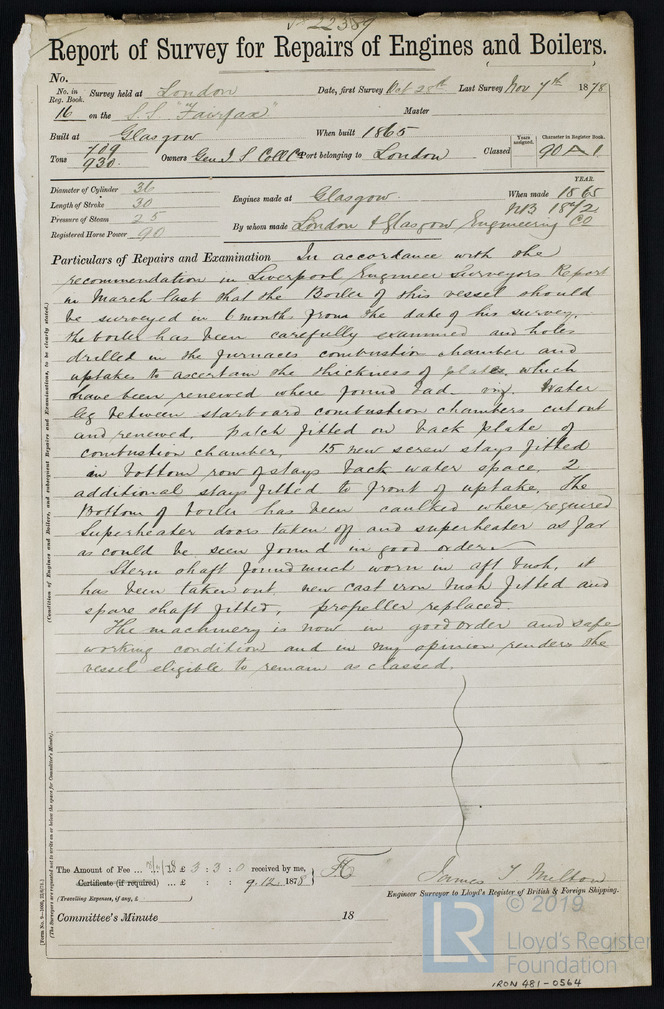 Report of Survey for Repairs of Engines and Boilers.
No.
No. in Reg. Book. Survey held at London Date, first Survey Oct 28th Last Survey Nov 7th 1878
16 on the S.S. "Fairfax" Master
Built at Glasgow When built 1865 Years assigned. Character in Register Book.
Tons 709 930 Owners Gen I S Coll Co Port belonging to London Classed 90 A 1
Diameter of Cylinder 36
Length of Stroke 30
Pressure of Steam 25
Registered Horse Power 90
YEAR.
Engines made at Glasgow. When made 1865
NB 1872
By whom made London & Glasgow Engineering Co
Particulars of Repairs and Examination In accordance with the
recommendation in Liverpool Engineer Surveyors Report
in March last that the Boiler of this vessel should
be surveyed in 6 months from the date of his survey.
the boiler has been carefully examined and holes
drilled in the furnaces combustion chamber and
uptakes to ascertain the thickness of plates which
have been renewed where found bad. Water
leg between starboard combustion chambers cut out
and renewed. patch fitted on back plate of
combustion chamber. 15 new screw stays fitted
in bottom row of stays back water space. 2
additional stays fitted to front of uptake. The
Bottom of boiler has been caulked where required
Superheater doors taken off and superheater as far
as could be seen found in good order.
Stern shaft found much worn in aft bush, it
has been taken out. new cast iron bush fitted and
spare shaft fitted. propeller replaced.
The machinery is now in good order and safe
working condition and in my opinion renders the
vessel eligible to remain as classed.
(Condition of Engines and Boilers, and subsequent Repairs and Examinations, to be clearly stated.)
(The Surveyors are requested not to write on or below the space for Committee's Minute.)
The Amount of Fee ... £ 3 : 3 : 0 received by me,
Certificate (if required) ... £ : : 9.12.1878
(Travelling Expenses, if any, £ )
James T Milton
Engineer Surveyor to Lloyd's Register of British & Foreign Shipping.
Committee's Minute 18
© 2019
LR
Lloyd's Register
Foundation
IRON 481-0564